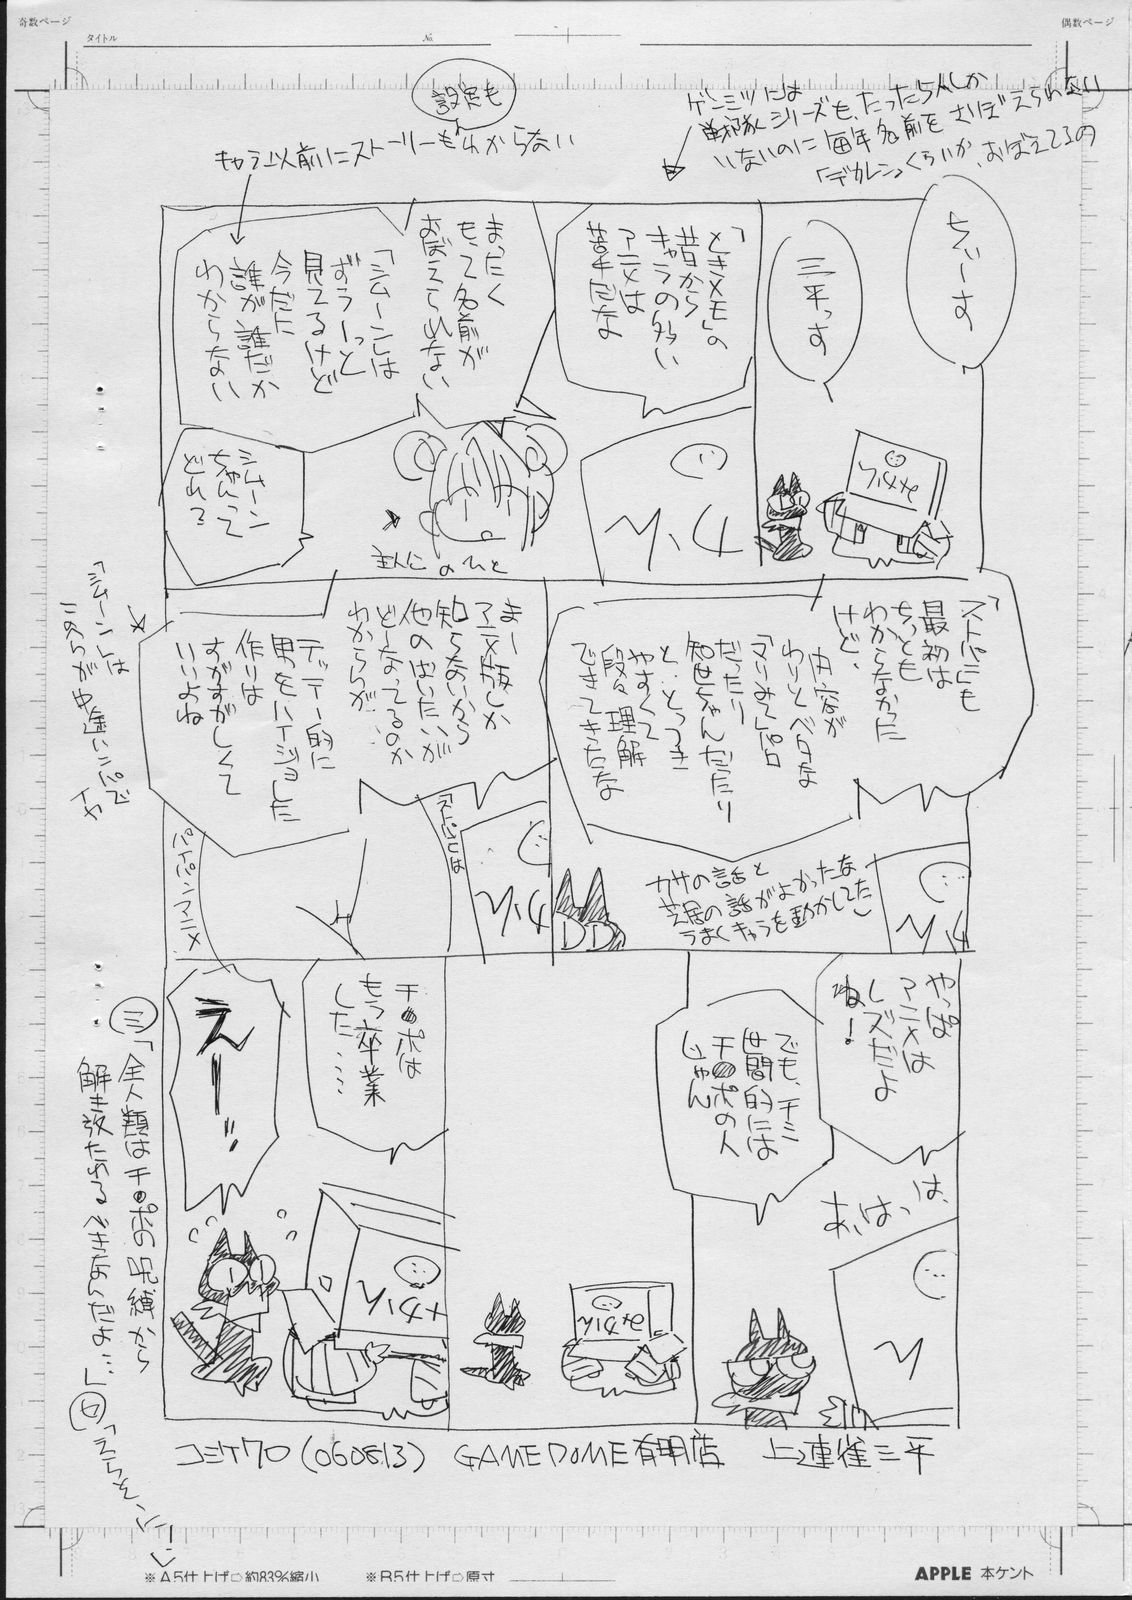 奇数ページ
偶数ページ
タイトル
No.
ゲンミツには
戦隊シリーズも、たった5人しか
いないのに毎年名前をさぼえられない
「デカレン」くらいか、おぼえてるの
設定も
キャラ以前にストーリーもわからない
ちぃーす
三平っす
「ときメモ」の
昔から
キャラの多い
アニメは
苦手だな
まったく
もって名前が
おぼえられない
「シムーン」は
ずぅーっと
見てるけど
今だに
誰が誰だか
わからない
シムーン
ちゃんって
どれ?
主人公のひと
みかん
みかん
「ストパニ」も
最初は
ちっとも
わからなかった
けど、
内容が
わりとベタな
「マリみて」パロ
だったり
知世ちゃんだったり
と、とっつき
やすくて
段々理解
できてきたな
カサの話と
芝居の話がよかったな
うまくキャラを動かしてた
みかん
まーアニメ版しか
知らないから
他のばいたいが
どーなってるのか
わからんが…
テッテー的に
男をハイジョした
作りは
すがすがしくて
いいよね
「シムーン」は
このらが中途ハンパで
ストパニは
みかん
やっぱ
アニメは
レズだよ
ね!
あ、はっは、
でも、チミ
世間的には
チ●ポの人
じゃん
みかん
チ●ポは
もう卒業
した……
えーっ!!
みかん
三「全人類はチ●ポの呪縛から
解き放たれるべきなんだよ…」
コミケ70(060813) GAMEDOME有明店 上連雀三平
※A5仕上げ⇨約83%縮小 ※B5仕上げ⇨原寸
APPLE 本ケント